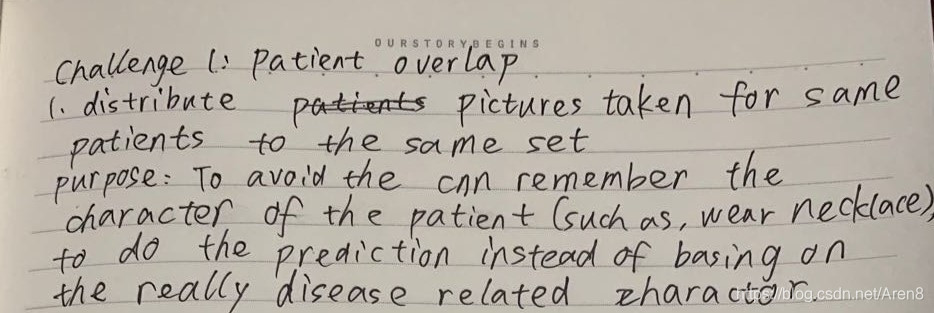 OURSTORYBEGINS
Challenge 1: Patient overlap
1. distribute patients pictures taken for same
patients to the same set
purpose: To avoid the cnn remember the
character of the patient (such as, wear necklace)
to do the prediction instead of basing on
the really disease related zharactor.
https://blog.csdn.net/Aren8